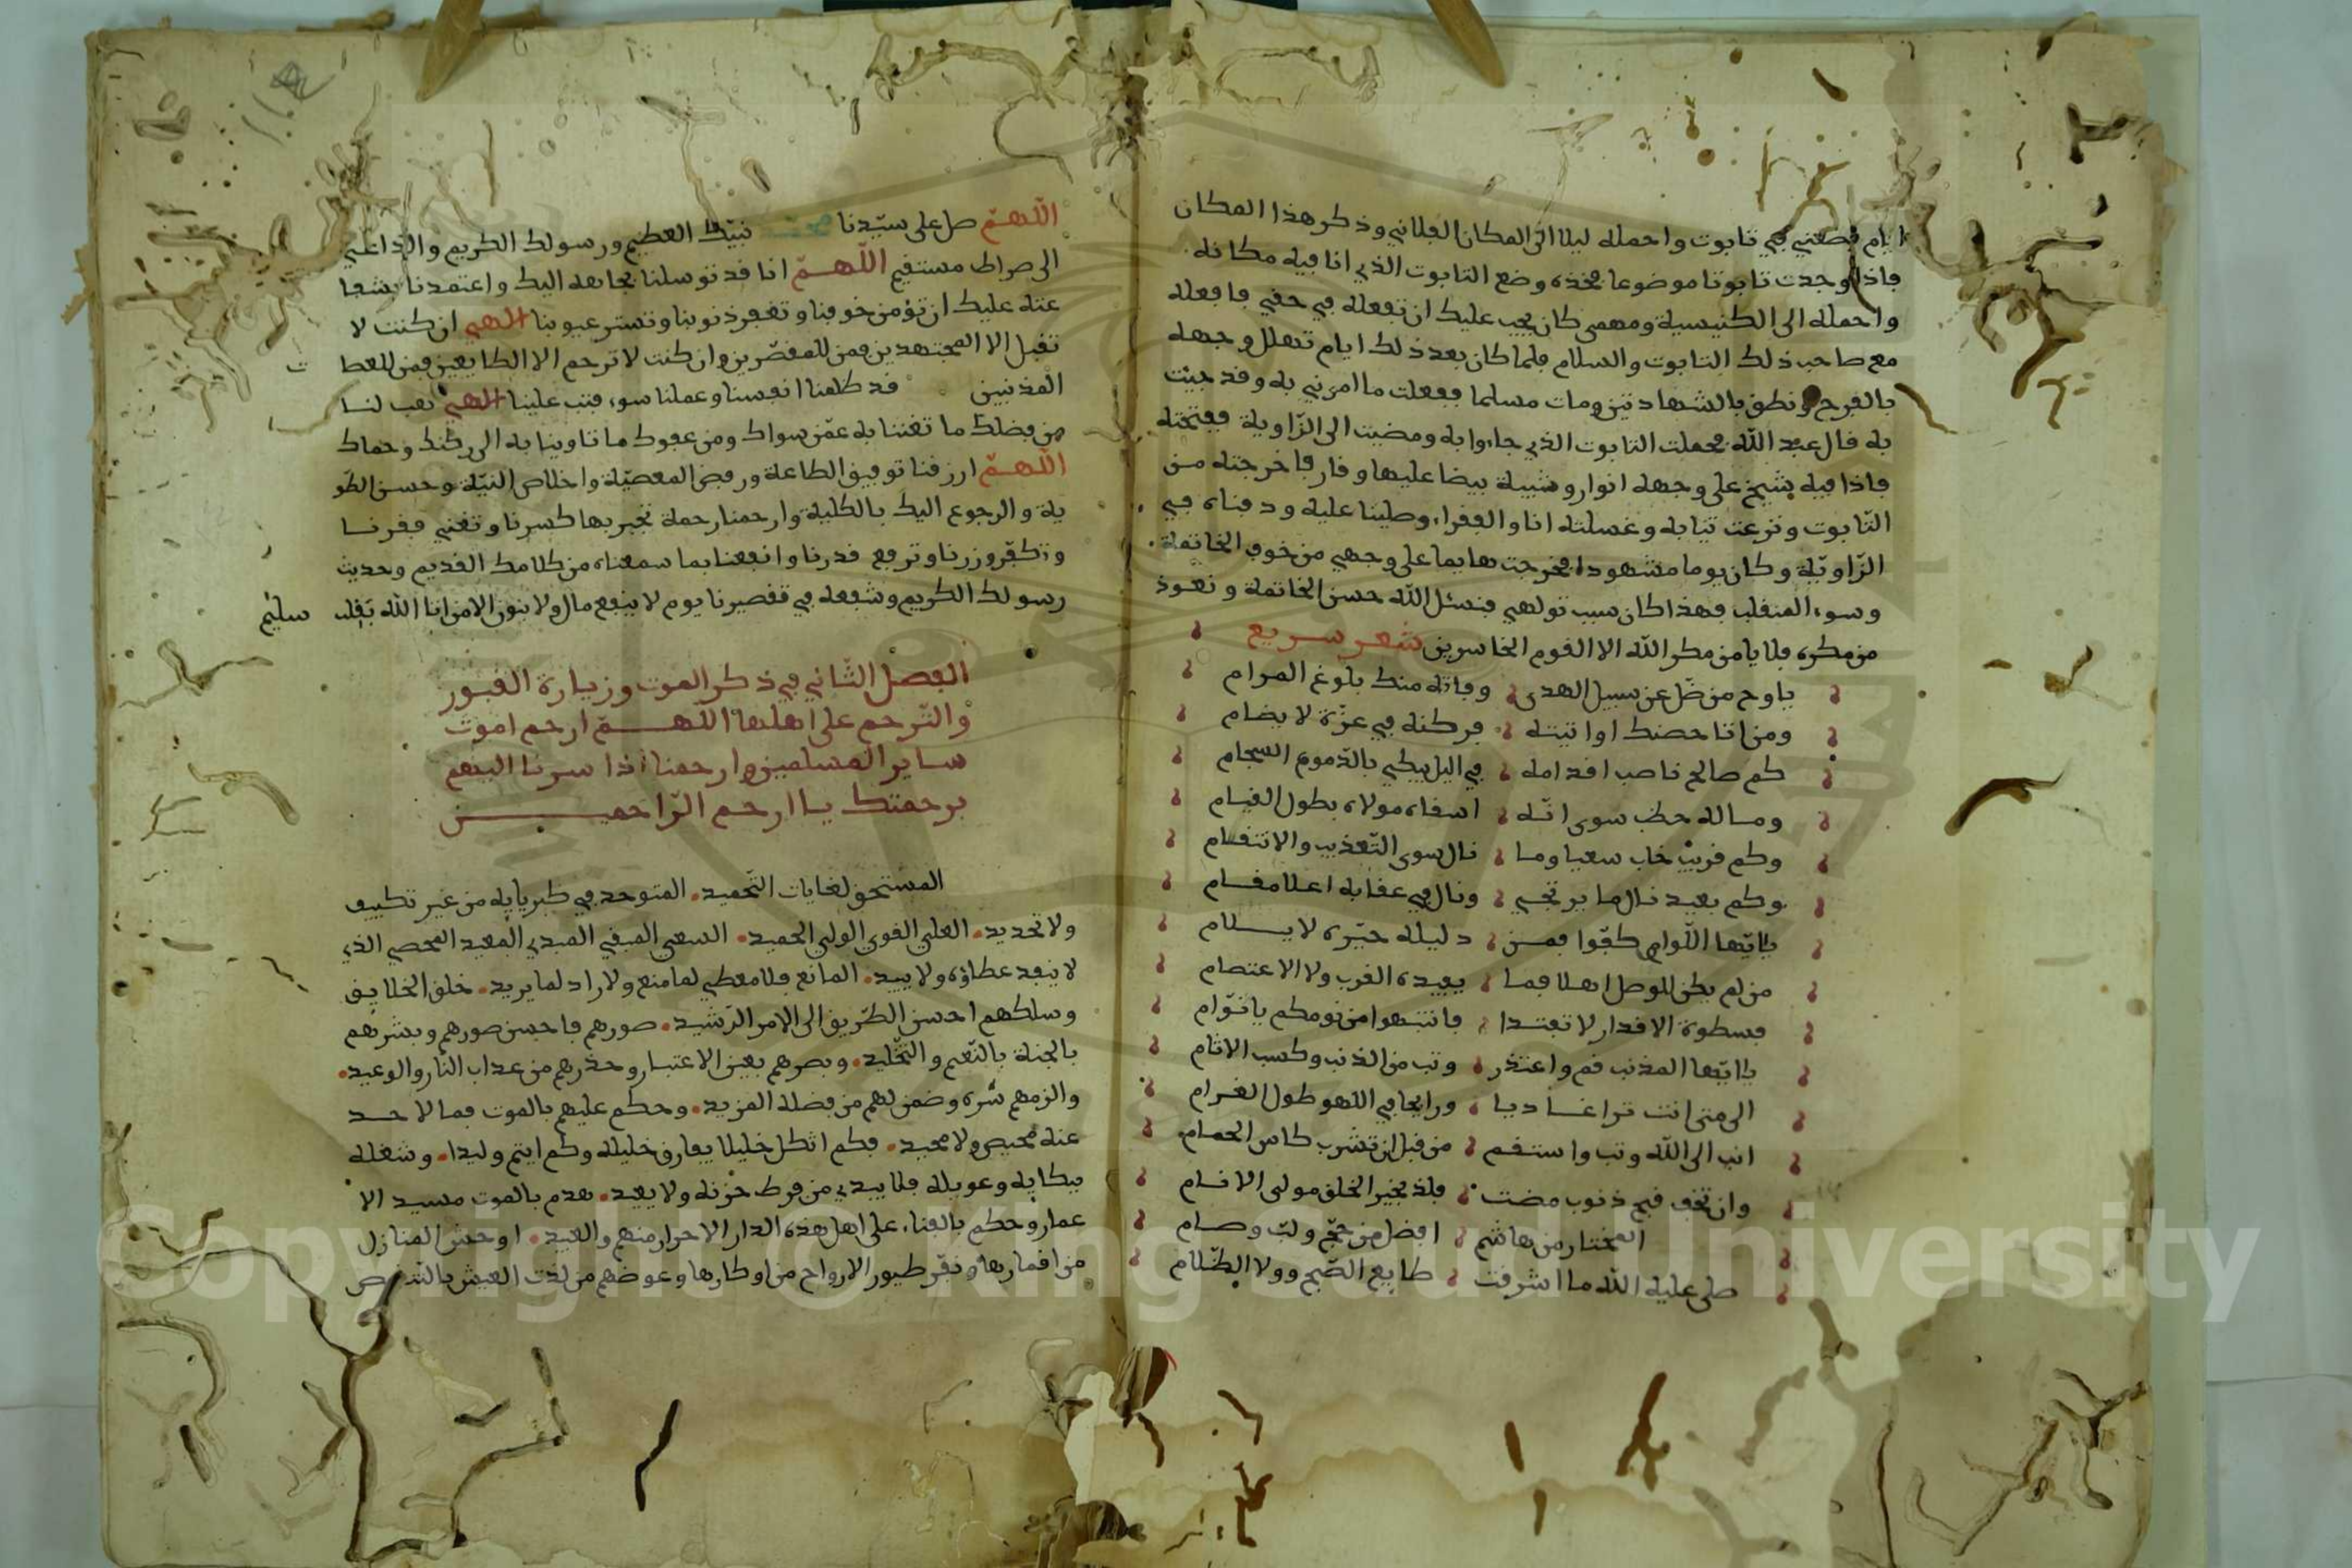 ايام فضعني في تابوت واحمله ليلا الى المكان الفلاني وذكر هذا المكان
فاذا وجدت تابوتا موضوعا فخذه وضع التابوت الذي انا فيه مكانه
واحمله الى الكنيسية ومهمى كان يجب عليك ان تفعله في حقي فافعله
مع صاحب ذلك التابوت والسلام فلما كان بعد ذلك ايام تهلل وجهه
بالفرح ونطق بالشهادتين ومات مسلما ففعلت ما امرني به وقد جيت
به قال عبد الله فحملت التابوت الذي جاءوا به ومضيت الى الزّاوية ففتحته
فاذا فيه شيخ على وجهه انوار وشيبة بيضا عليها وقار فاخرجته من
التّابوت ونزعت ثيابه وغسلته انا والفقراء وصلينا عليه ودفناه في
الزّاويّة وكان يوما مشهودا فخرجت هايما على وجهي من خوف الخاتمة
وسوء المنقلب فهذا كان سبب تولهي فنسئل الله حسن الخاتمة ونعوذ
من مكره فلا يامن مكر الله الا القوم الخاسرين شعر سريع
ياوح من ضّل عن سبيل الهدى وفاته منك بلوغ المرام
ومن اتا حصنك اوا تيته فركنه في عزّة لا يضام
كم صالح ناصب اقدامه في اليل يبكي بالدّموع السجام
وماله حظ سوى انّه اسفاه مولاه بطول القيام
وكم قريب خاب سعيا وما نال سوى التّعذيب والانتقام
وكم بعيد نال ما يرتجي ونال في عقابه اعلا مقام
يايّها اللّوام كفّوا فمن دليله حيّره لا يلام
من لم يكن للوصل اهلا فما يفيده القرب ولا الاعتصام
فسطوة الاقدار لا تفتدا فانتبهوا من نومكم يا نوّام
يايّها المذنب قم واعتذر وتب من الذنب وكسب الاثام
الى متى انت ترا غاديا ورايحا في اللهو طول الغرام
انب الى الله وتب واستقم من قبل ان تشرب كاس الحمام
وان تخف قبح ذنوب مضت فلذ بخير الخلق مولى الانام
المختار من هاشم افضل من حجّ ولبّ وصام
صلى عليه الله ما اشرقت طلايع الصّبح وولا الظّلام
اللّهمّ صل على سيّدنا نبيّك العظيم ورسولك الكريم والداعي
الى صراط مستقيم اللّهمّ انا قد توسلنا بجاهه اليك واعتمدنا بشفا
عته عليك ان تؤمن خوفنا وتغفر ذنوبنا وتستر عيوبنا الهي ان كنت لا
تقبل الا المجتهدين فمن للمقصّرين وان كنت لا ترحم الا الطايعين فمن للعطا
المذنبين قد ظلمنا انفسنا وعملنا سوء فتب علينا الهي فهب لنا
من فضلك ما تغننا به عمّن سواك ومن عفوك ما تاوينا به الى ركنك وحماك
اللّهمّ ارزقنا توفيق الطاعة ورفض المعصيّة واخلاص النيّة وحسن الطو
ية والرجوع اليك بالكلية وارحمنا رحمة تجبر بها كسرنا وتغني فقرنا
وتكفّر وزرنا وترفع قدرنا وانفعنا بما سمعناه من كلامك القديم وحديث
رسولك الكريم وشفعه في تقصيرنا يوم لا ينفع مال ولا بنون الا من اتا الله بقلب سليم
الفصل الثّاني في ذكر الموت وزيارة القبور
والتّرحم على اهلها اللّهمّ ارحم اموت
ساير المسلمين وارحمنا اذا سرنا اليهم
برحمتك يا ارحم الرّاحمين
المستحق لغايات التّحميد. المتوحد في كبريايه من غير تكييف
ولا تحديد. العلي القوي الولي الحميد. السعي المبقي المبدي المعيد المحصي الذي
لا ينفد عطاؤه ولا يبيد. المانع فلا معطي لما منع ولا راد لما يريد. خلق الخلايق
وسلكهم احسن الطّريق الى الامر الرّشيد. صورهم فاحسن صورهم وبشرهم
بالجنة بالنّعيم والتّخليد. وبصرهم بعين الاعتبار وحذرهم من عداب النّار والوعيد.
والزمهم شكره وضمن لهم من فضله المزيد. وحكم عليهم بالموت فما لاحد
عنه محيص ولا محيد. فكم اثكل خليلا يفارق خليله وكم ايتم وليدا. وشغله
ببكايه وعويله فلا يبدي من فرط حزنه ولا يعيد. هدم بالموت مسيد الا
عمار وحكم بالفناء على اهل هذه الدار الاحرار منهم والعبيد. اوحش المنازل
من اقمارها ونفّر طيور الارواح من اوكارها وعوضهم من لذت العيش بالتّنغيص